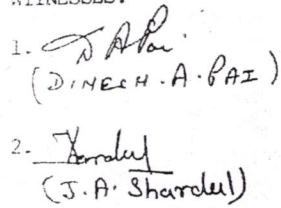 WITNESSES:
1. D A Pai
(DINESH . A . PAI)
2.
(J. A. Shardul)